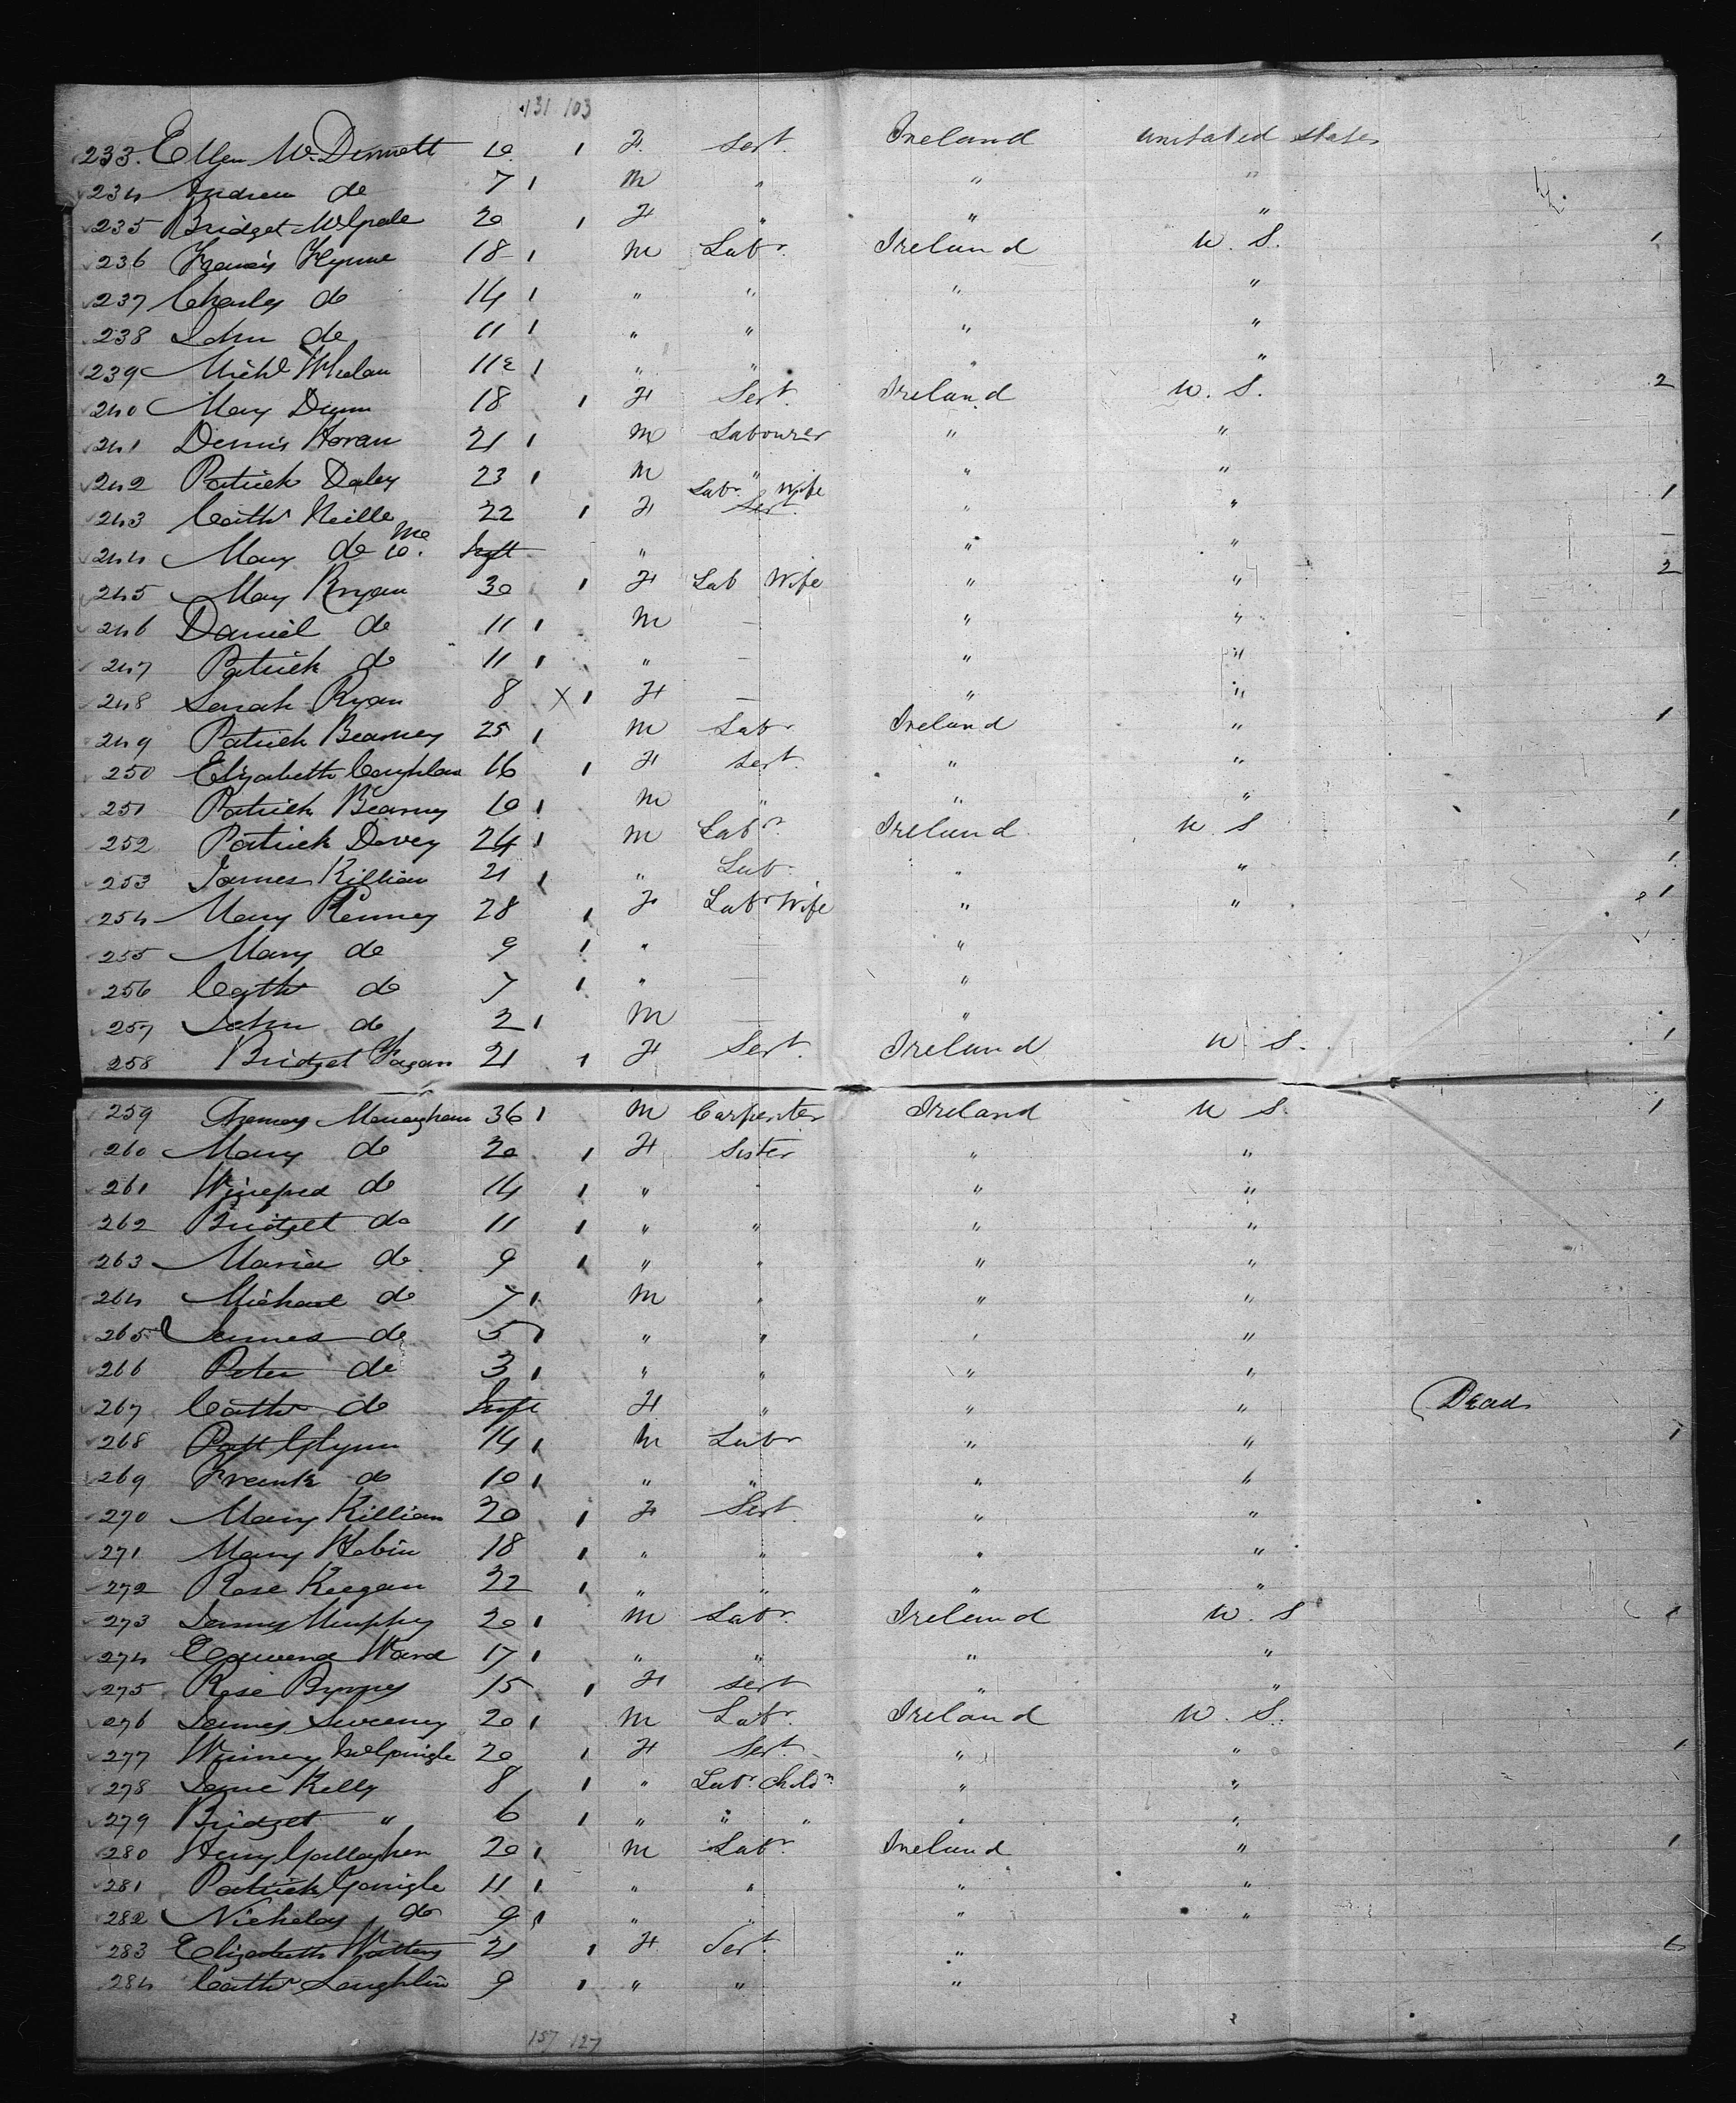 131 103
233. Ellen McDermott 10. 1 F. Sert. Ireland Unitated States
234 Andrew do 7 1 M " " "
235 Bridget 20 1 F " " "
236 Francis Flynne 18 1 M Labr. Ireland U. S. 1
237 Charles do 14 1 " " " "
238 John do 11 1 " " " "
239 Michl Whelan 11 1 " " " "
240 Mary Dunn 18 1 F Sert. Ireland U. S. 2
241 Dennis Horan 21 1 M Labourer " "
242 Patrick Daley 23 1 M " " "
243 Cathr Neille 22 1 F Labr. Wife Sert. " " 1
244 Mary do 10. mo Inft " " " –
245 Mary Ryan 30 1 F Lab Wife " " 2
246 Daniel do 11 1 M – " "
247 Patrick do 11 1 " – " "
248 Sarah Ryan 8 X 1 F – " "
249 Patrick Bearney 25 1 M Labr Ireland " 1
250 Elizabeth Coughlan 16 1 F Sert. " "
251 Patrick Bearney 10 1 M " " "
252 Patrick Davey 24 1 M Labr. Ireland U. S 1
253 James Killian 21 1 " Lab. " " 1
254 Mary Kenney 28 1 F Labr Wife " " 1
255 Mary do 9 1 " – "
256 Cathr do 7 1 " – "
257 John do 2 1 M – "
258 Bridget Fagan 21 1 F Sert. Ireland U. S. 1
259 Thomas Monaghan 36 1 M Carpenter Ireland U S. 1
260 Mary do 20 1 F Sister " "
261 Winefred do 14 1 " " " "
262 Bridget do 11 1 " " " "
263 Maria do 9 1 " " " "
264 Michael do 7 1 M " " "
265 James do 5 1 " " " "
266 Peter do 3 1 " " " "
267 Cathr do Inft F " " " Dead
268 Patt Glynn 14 1 M Labr " " 1
269 Frank do 10 1 " " " "
270 Mary Killian 20 1 F Sert. " "
271 Mary Hobin 18 1 " " " "
272 Rose Keegan 22 1 " " " "
273 James Murphy 20 1 M Labr. Ireland U. S 1
274 Edward Ward 17 1 " " " "
275 Rose Byrnes 15 1 F Sert " "
276 James Sweeney 20 1 M Labr. Ireland U. S.
277 Winney 20 1 F Sert. " " 1
278 Jane Kelly 8 1 " Labr. Childn " "
279 Bridget " 6 1 " " " " "
280 Henry Gallagher 20 1 M Labr. Ireland " 1
281 Patrick Gonigle 11 1 " " " "
282 Nicholas do 9 1 " " " "
283 Elizabeth Watters 21 1 F Sert. "
284 Cathr Loughlin 9 1 " " "
157 127